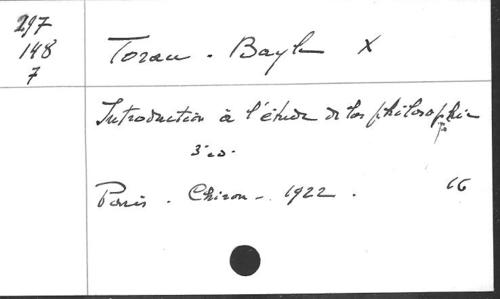 297
148
7
Toran - Bayle X
Introduction à l'étude de la philosophie
3e ed.
Paris - Chiron - 1922. 16